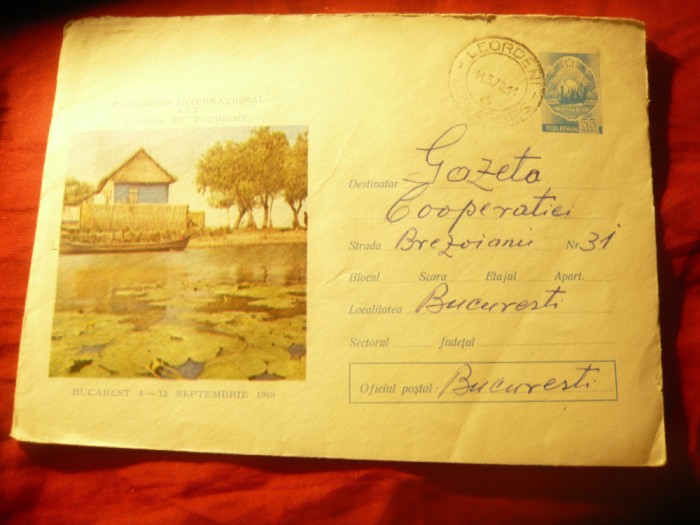 CONGRES INTERNATIONAL
ET TOURISME
BUCAREST 8—12 SEPTEMBRIE 1969
LEORDENI
POSTA ROMANA 55
Destinatar Gazeta
Cooperatiei
Strada Brezoianu Nr 31
Blocul Scara Etajul Apart.
Localitatea Bucuresti
Sectorul Județul
Oficiul poștal: Bucuresti